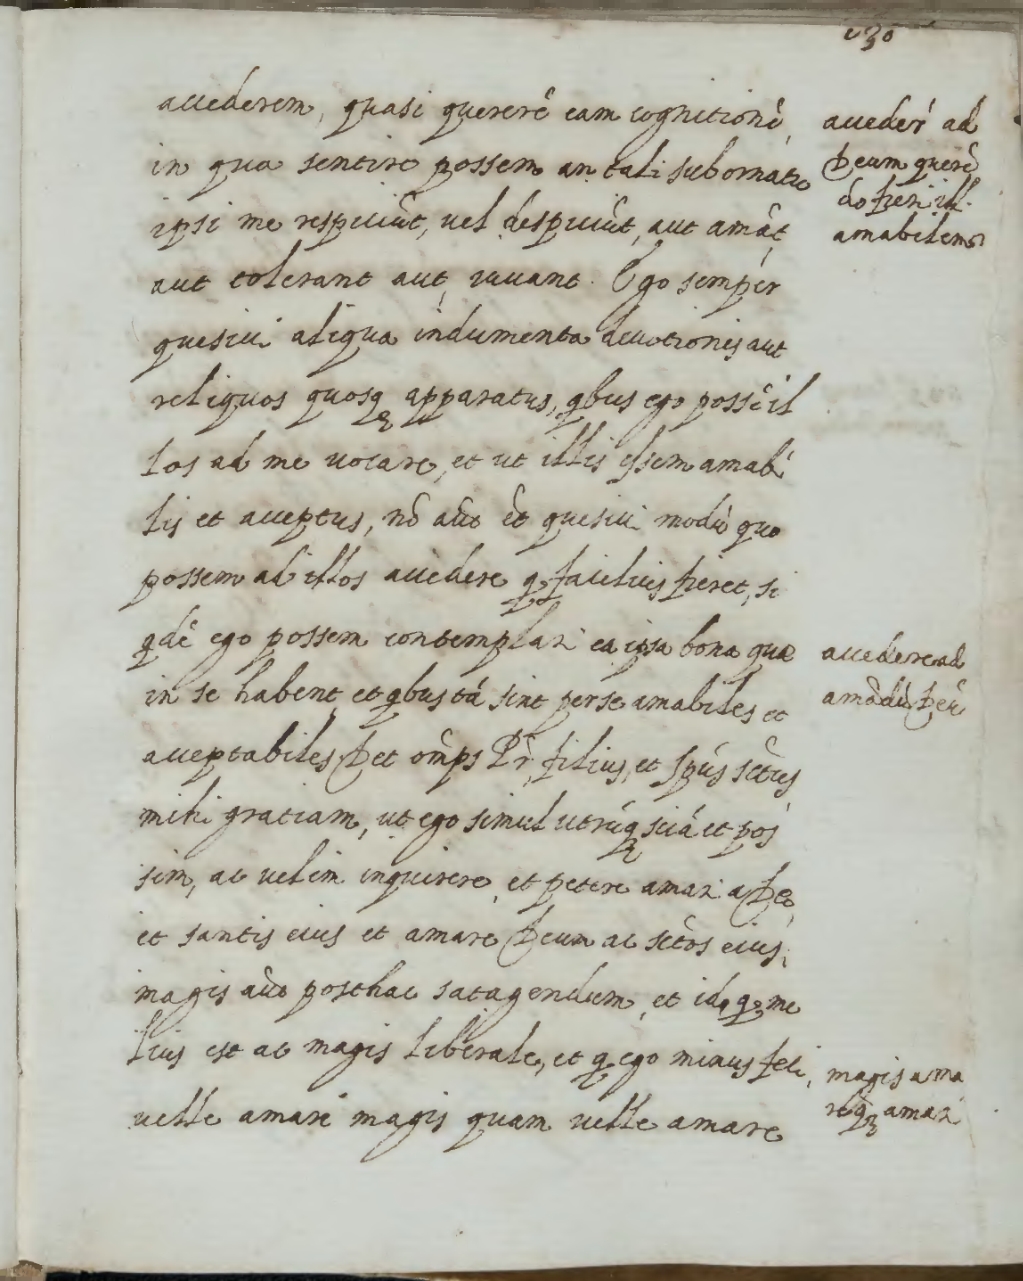 130
accederem, quasi quererē eam cognitionē,
in qua sentire possem an tali subornatū
ipsi me respiciūt, vel despiciūt, aut amāt,
aut tolerant aut iuuant. Ego semper
quesiui aliqua indumenta deuotionis aut
reliquos quosq apparatus, qbus ego possē il
los ad me vocare, et ut illis essem amabi
lis et acceptus, nō aūt ēt quesiui modū quo
possem ad illos accedere q facilius fieret, si
qdē ego possem contemplari ea ipsa bona quæ
in se habent et qbus tā sint per se amabiles et
acceptabiles Det om̄ps Pr̄, filius, et Spūs sctūs
mihi gratiam, ut ego simul utrūq sciā et pos
sim, ac velim inquirere, et petere amari a Deo,
et santis eius et amare Deum ac sctōs eius,
magis aūt posthac satagendum, et id q me
lius est ac magis liberale, et q ego minus feci,
velle amare magis quam velle amare
accederē ad
Deum querē
do fieri ill.
amabilem
accedere ad
amādū Deū
magis ama
re q amari